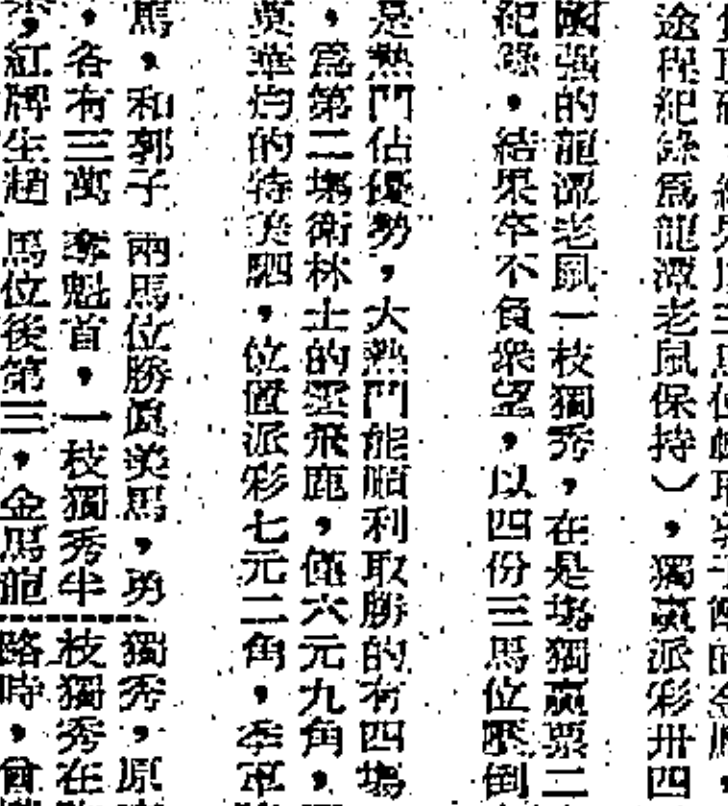 途程紀錄爲龍潭老鳳保持），獨贏派彩卅四
强的龍潭老鳳一枝獨秀，在是塲獨贏票二
紀錄，結果卒不負衆望，以四份三馬位壓倒
是熱門佔優勢，大熱門能順利取勝的有四塲
，爲第二塲衛林士的雲飛鹿，僅六元九角，
華灼的特美駟，位置派彩七元二角，季軍
馬，和郭子
，各有三萬
，紅牌生趙
兩馬位勝眞美馬，勇
奪魁首，一枝獨秀半
馬位後第三，金馬龍
獨秀，原
枝獨秀在
路時，曾